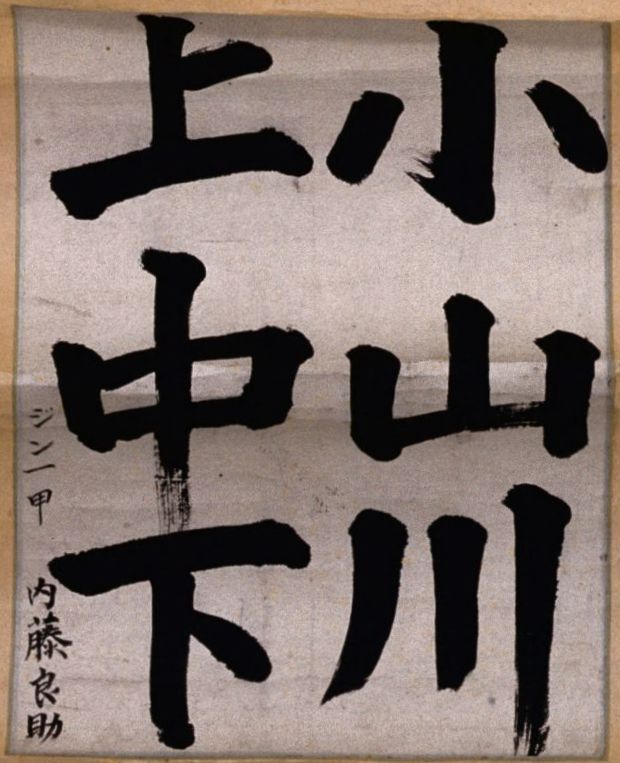 小山川
上中下
ジン一甲
内藤良助